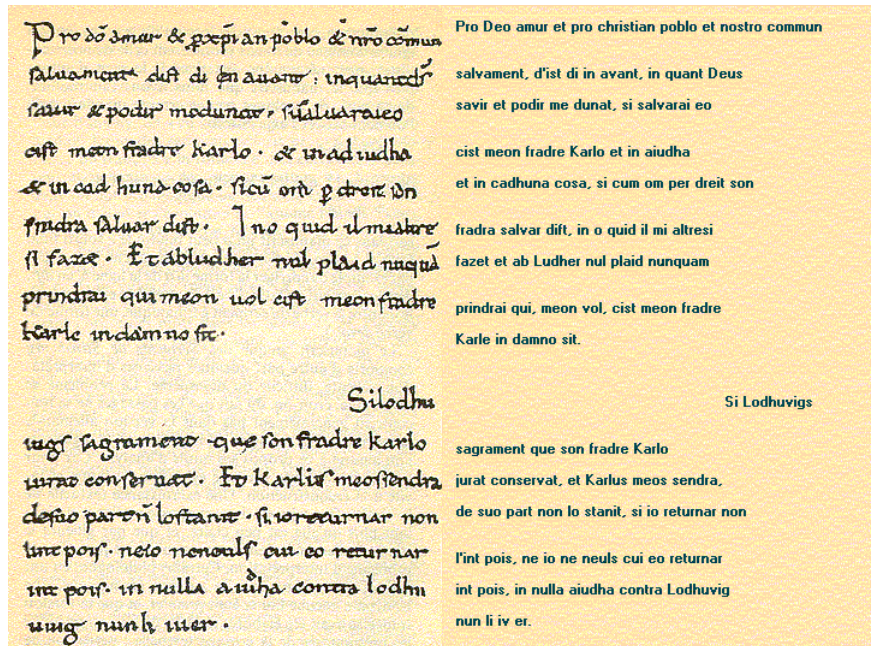 Pro dō amur & p xp̄ian poblo & nr̄o cōmun
saluament dist di in auant. inquantds̄
sauir & podir medunat. sisaluaraieo
cist meon fradre Karlo. & in ad iudha
& in cad huna cosa. sicū om p dreit son
fradra saluar dist. Ino quid il mialtre
si fazet. Et abludher nul plaid nūquā
prindrai qui meon uol cist meon fradre
Karle in damno sit.
Silodhu
uigs sagrament que son fradre Karlo
iurat conseruat. Et Karlus meossendra
desuo partn̄ lostanit. si ioreturnar non
lint pois. neio neneuls cui eo returnar
int pois. in nulla aiudha contra lodhu
uuig nunli iuer.
Pro Deo amur et pro christian poblo et nostro commun
salvament, d'ist di in avant, in quant Deus
savir et podir me dunat, si salvarai eo
cist meon fradre Karlo et in aiudha
et in cadhuna cosa, si cum om per dreit son
fradra salvar dift, in o quid il mi altresi
fazet et ab Ludher nul plaid nunquam
prindrai qui, meon vol, cist meon fradre
Karle in damno sit.
Si Lodhuvigs
sagrament que son fradre Karlo
jurat conservat, et Karlus meos sendra,
de suo part non lo stanit, si io returnar non
l'int pois, ne io ne neuls cui eo returnar
int pois, in nulla aiudha contra Lodhuvig
nun li iv er.